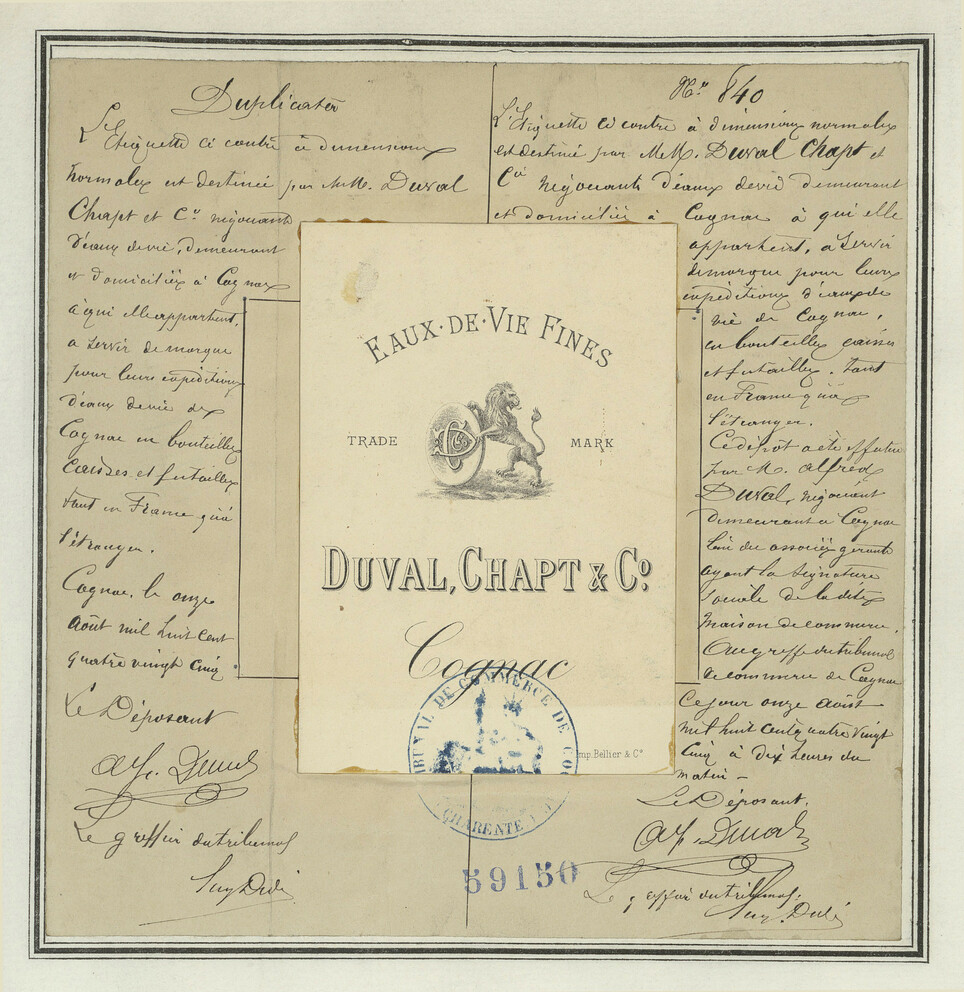 Duplicata
L'Etiquette ci contre à dimensions
normales est destinée par MM. Duval
Chapt et Cie négociants
d'eaux de vie, demeurant
et domiciliés à Cognac
à qui elle appartient,
a servir de marque
pour leurs expéditions
d'eaux de vie de
Cognac en bouteilles
caisses et futailles
tant en France qu'à
l'étranger.
Cognac, le onze
août mil huit cent
quatre vingt cinq
Le Déposant
Alf. Duval
Le greffier du tribunal
No 840
L'Etiquette ci contre à dimensions normales
est destiné par M.M. Duval Chapt et
Cie négociants d'eaux de vie demeurant
et domiciliés à Cognac à qui elle
appartient, a servir
de marque pour leurs
expéditions d'eaux de
vie de Cognac,
en bouteilles caisses
et futailles. tant
en France qu'à
l'étranger.
Ce dépot a été effectué
par M. Alfred
Duval, négociant
demeurant a Cognac
l'un des associés gérants
ayant la signature
sociale de la dite
maison de commerce.
Au greffe du tribunal
de commerce de Cognac
Ce jour onze août
mil huit cent quatre vingt
cinq à dix heures du
matin
Le Déposant.
Alf. Duval
Le greffier du tribunal.
EAUX·DE·VIE FINES
TRADE MARK
DUVAL, CHAPT & Co
Cognac
Imp. Bellier & Ce
TRIBUNAL DE COMMERCE DE COG
CHARENTE
59150